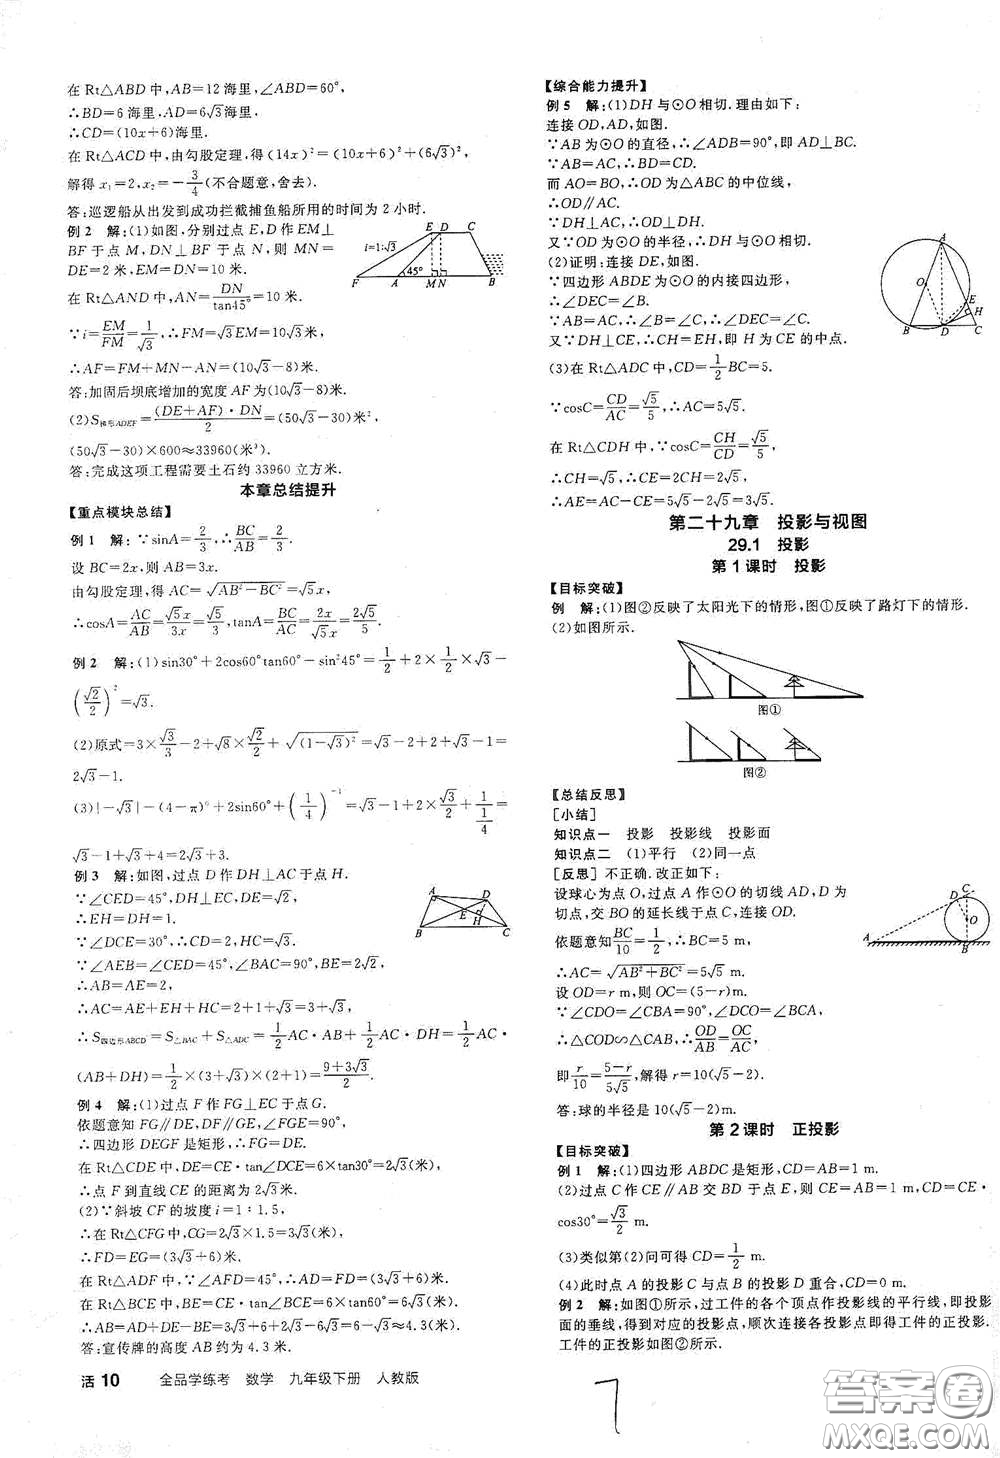 在 Rt△ABD 中,AB=12 海里,∠ABD=60°,
∴BD=6 海里,AD=6√3 海里,
∴CD=(10x+6)海里.
在 Rt△ACD 中,由勾股定理,得 (14x)²=(10x+6)²+(6√3)²,
解得 x₁=2,x₂=-3/4(不合题意,舍去).
答:巡逻船从出发到成功拦截捕鱼船所用的时间为 2 小时.
例 2 解:(1)如图,分别过点 E,D 作 EM⊥
BF 于点 M,DN⊥BF 于点 N,则 MN=
DE=2 米,EM=DN=10 米.
在 Rt△AND 中,AN=DN/tan45°=10 米.
∵i=EM/FM=1/√3,∴FM=√3EM=10√3米,
∴AF=FM+MN-AN=(10√3-8)米.
答:加固后坝底增加的宽度 AF 为(10√3-8)米.
(2)S梯形ADEF=(DE+AF)·DN/2=(50√3-30)米²,
(50√3-30)×600≈33960(米³).
答:完成这项工程需要土石约 33960 立方米.
E D C
i=1:√3
45°
F A MN B
本章总结提升
【重点模块总结】
例 1 解:∵sinA=2/3,∴BC/AB=2/3.
设 BC=2x,则 AB=3x.
由勾股定理,得 AC=√(AB²-BC²)=√5x,
∴cosA=AC/AB=√5x/3x=√5/3,tanA=BC/AC=2x/√5x=2√5/5.
例 2 解:(1)sin30°+2cos60°tan60°-sin²45°=1/2+2×1/2×√3-
(√2/2)²=√3.
(2)原式=3×√3/3-2+√8×√2/2+√(1-√3)²=√3-2+2+√3-1=
2√3-1.
(3)|-√3|-(4-π)⁰+2sin60°+(1/4)⁻¹=√3-1+2×√3/2+1/(1/4)=
√3-1+√3+4=2√3+3.
例 3 解:如图,过点 D 作 DH⊥AC 于点 H.
∵∠CED=45°,DH⊥EC,DE=√2,
∴EH=DH=1.
∵∠DCE=30°,∴HC=√3.
∵∠AEB=∠CED=45°,∠BAC=90°,BE=2√2,
∴AB=AE=2,
∴AC=AE+EH+HC=2+1+√3=3+√3,
∴S四边形ABCD=S△BAC+S△ADC=1/2AC·AB+1/2AC·DH=1/2AC·
(AB+DH)=1/2×(3+√3)×(2+1)=(9+3√3)/2.
A D
E H
B C
例 4 解:(1)过点 F 作 FG⊥EC 于点 G.
依题意知 FG∥DE,DF∥GE,∠FGE=90°,
∴四边形 DEGF 是矩形,∴FG=DE.
在 Rt△CDE 中,DE=CE·tan∠DCE=6×tan30°=2√3(米),
∴点 F 到直线 CE 的距离为 2√3米.
(2)∵斜坡 CF 的坡度 i=1∶1.5,
∴在 Rt△CFG 中,CG=2√3×1.5=3√3(米),
∴FD=EG=(3√3+6)米.
在 Rt△ADF 中,∵∠AFD=45°,∴AD=FD=(3√3+6)米.
在 Rt△BCE 中,BE=CE·tan∠BCE=6×tan60°=6√3(米),
∴AB=AD+DE-BE=3√3+6+2√3-6√3=6-√3≈4.3(米).
答:宣传牌的高度 AB 约为 4.3 米.
【综合能力提升】
例 5 解:(1)DH 与⊙O 相切.理由如下:
连接 OD,AD,如图.
∵AB 为⊙O 的直径,∴∠ADB=90°,即 AD⊥BC.
∵AB=AC,∴BD=CD.
而 AO=BO,∴OD 为△ABC 的中位线,
∴OD∥AC.
∵DH⊥AC,∴OD⊥DH.
又∵OD 为⊙O 的半径,∴DH 与⊙O 相切.
(2)证明:连接 DE,如图.
∵四边形 ABDE 为⊙O 的内接四边形,
∴∠DEC=∠B.
∵AB=AC,∴∠B=∠C,∴∠DEC=∠C.
又∵DH⊥CE,∴CH=EH,即 H 为 CE 的中点.
(3)在 Rt△ADC 中,CD=1/2BC=5.
∵cosC=CD/AC=√5/5,∴AC=5√5.
在 Rt△CDH 中,∵cosC=CH/CD=√5/5,
∴CH=√5,∴CE=2CH=2√5,
∴AE=AC-CE=5√5-2√5=3√5.
A
O E
H
B D C
第二十九章 投影与视图
29.1 投影
第 1 课时 投影
【目标突破】
例 解:(1)图②反映了太阳光下的情形,图①反映了路灯下的情形.
(2)如图所示.
图①
图②
【总结反思】
[小结]
知识点一 投影 投影线 投影面
知识点二 (1)平行 (2)同一点
[反思] 不正确.改正如下:
设球心为点 O,过点 A 作⊙O 的切线 AD,D 为
切点,交 BO 的延长线于点 C,连接 OD.
依题意知BC/10=1/2,∴BC=5 m,
∴AC=√(AB²+BC²)=5√5 m.
设 OD=r m,则 OC=(5-r)m.
∵∠CDO=∠CBA=90°,∠DCO=∠BCA,
∴△COD∽△CAB,∴OD/AB=OC/AC,
即r/10=(5-r)/5√5,解得 r=10(√5-2).
答:球的半径是 10(√5-2)m.
D C
O
A B
第 2 课时 正投影
【目标突破】
例 1 解:(1)四边形 ABDC 是矩形,CD=AB=1 m.
(2)过点 C 作 CE∥AB 交 BD 于点 E,则 CE=AB=1 m,CD=CE·
cos30°=√3/2 m.
(3)类似第(2)问可得 CD=1/2 m.
(4)此时点 A 的投影 C 与点 B 的投影 D 重合,CD=0 m.
例 2 解:如图①所示,过工件的各个顶点作投影线的平行线,即投影
面的垂线,得到对应的投影点,顺次连接各投影点即得工件的正投影.
工件的正投影如图②所示.
活 10 全品学练考 数学 九年级下册 人教版
7
答案圈
MXQE.COM